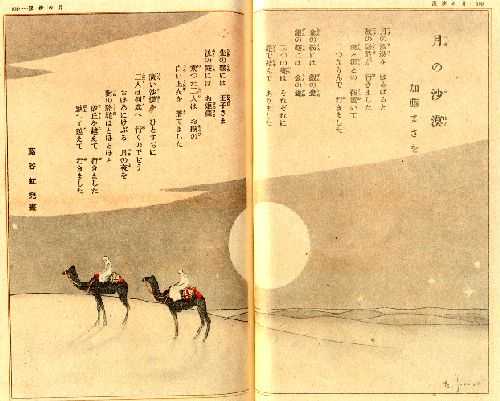 月の沙漠
月の沙漠
加藤まさを
月の沙漠を はるばると
旅の駱駝が 行きました
金と銀との 鞍置いて
二つならんで 行きました
金の鞍には 銀の甕
銀の鞍には 金の甕
二つの甕は それぞれに
紐で結んで ありました
月の沙漠
先の鞍には 王子さま
後の鞍には お姫様
乘つた二人は お揃の
白い上衣を 着てました
廣い沙漠を ひとすぢに
二人は何處へ 行くのでせう
おぼろにけぶる 月の夜を
對の駱駝は とぼとぼと
沙丘を越えて 行きました
默つて越えて 行きました
蕗谷虹兒畫